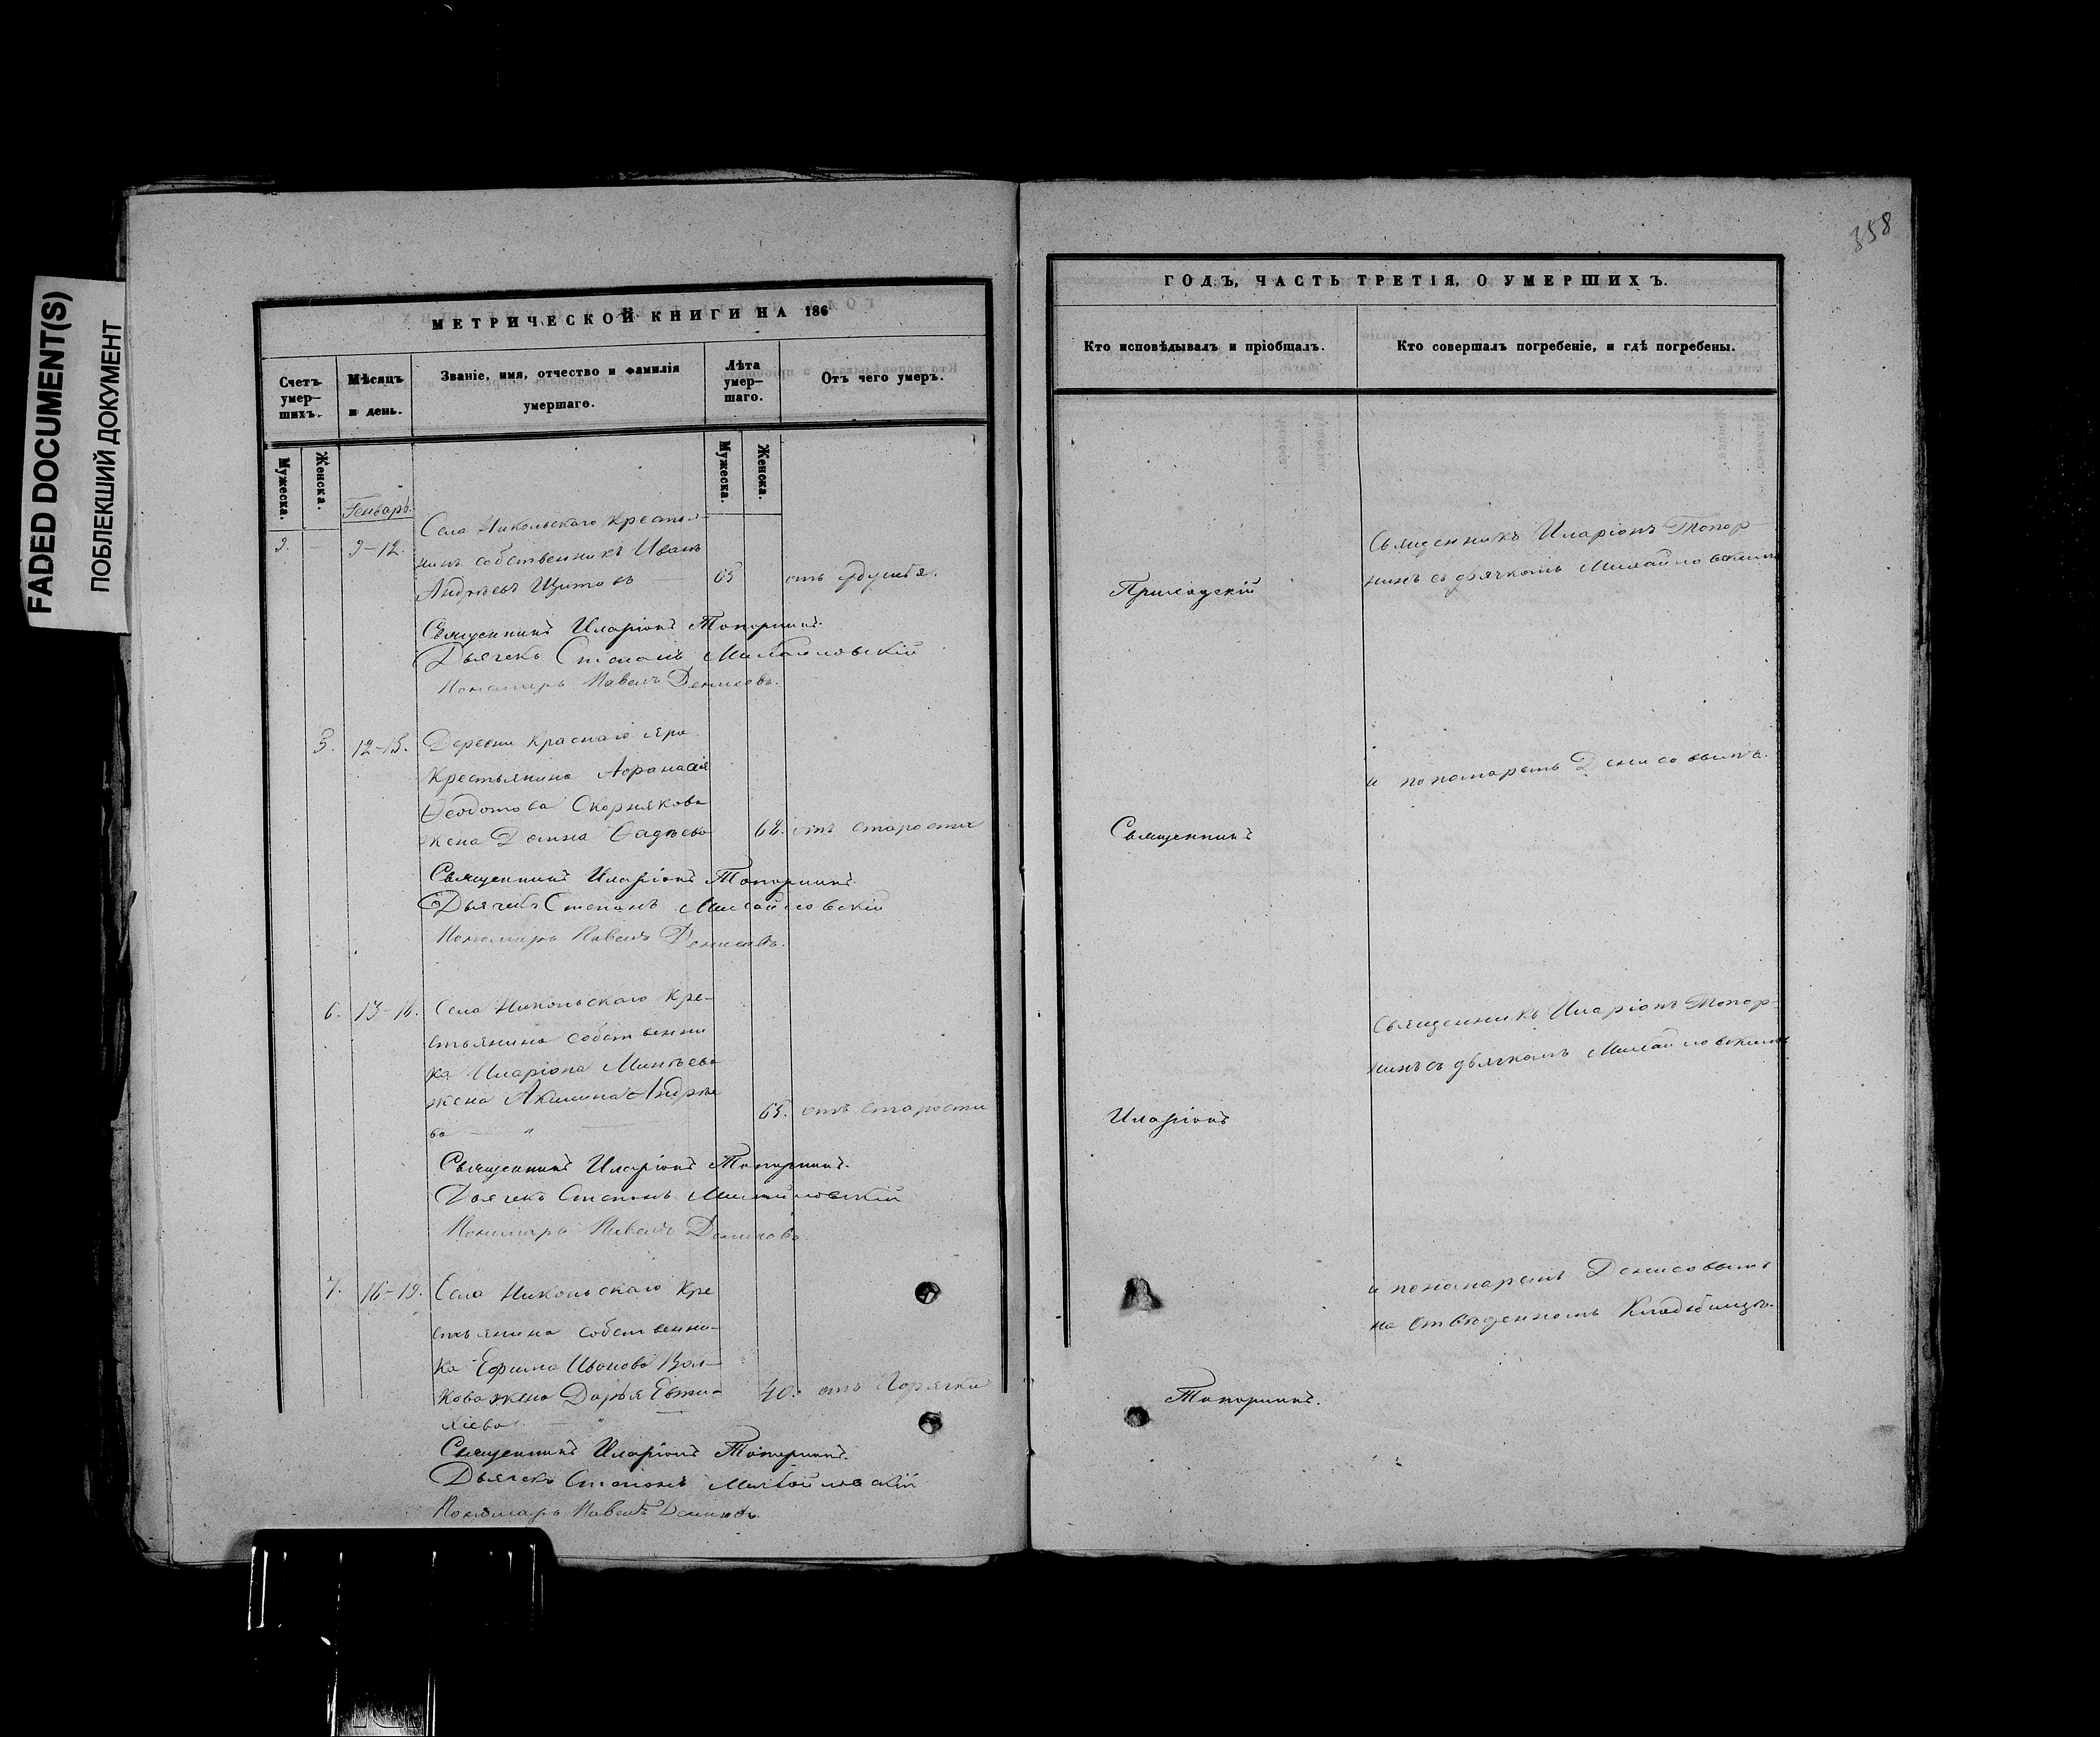 FADED DOCUMENT(S)
ПОБЛЕКШИЙ ДОКУМЕНТ
МЕТРИЧЕСКОЙ КНИГИ НА 186
Счетъ умер— шихъ.
Мѣсяцъ и день.
Званіе, имя, отчество и фамилія умершаго.
Лѣта умер— шаго.
Отъ чего умеръ.
Мужеска.
Женска.
Мужеска.
Женска.
Генварь.
Села Никольскаго Крестья-
9. — 9-12. нинъ собственникъ Иванъ
Андрѣевъ Щитовъ — 65 отъ удушья.
Священникъ Иларіонъ Топорнинъ.
Дьячекъ Степанъ Михайловскій
Пономарь Павелъ Денисовъ.
5. 12-15. Деревни Краснаго Яра
Крестьянина Афанасія
Ѳеодотова Скорнякова
жена Домна Ѳадѣева 68. отъ старости
Священникъ Иларіонъ Топорнинъ.
Дьячекъ Степанъ Михайловскій
Пономарь Павелъ Денисовъ.
6. 13-16. Села Никольскаго Кре-
стьянина собственни
ка Иларіона Минѣева
жена Акилина Андрѣе
ва — „ — 65. отъ старости
Священникъ Иларіонъ Топорнинъ.
Дьячекъ Степанъ Михайловскій
Пономарь Павелъ Денисовъ
7. 16-19. Села Никольскаго Кре
стьянина собственни-
ка Ефима Ионова Вол-
кова жена Дарья Евти- 40. отъ Горячки
хіева. — „ —
Священникъ Иларіонъ Топорнинъ.
Дьячекъ Степанъ Михайловскій
Пономарь Павелъ Денисовъ.
358
ГОДЪ, ЧАСТЬ ТРЕТІЯ, О УМЕРШИХЪ.
Кто исповѣдывалъ и пріобщалъ.
Кто совершалъ погребеніе, и гдѣ погребены.
Священникъ Иларіонъ Топор
нинъ съ дьячкомъ Михайловскимъ
Приходскій
и пономаремъ Денисовымъ.
Священникъ
Священникъ Иларіонъ Топор-
нинъ съ дьячкомъ Михайловскимъ
Иларіонъ
и пономаремъ Денисовымъ
на отведенномъ Кладбищѣ.
Топорнинъ.